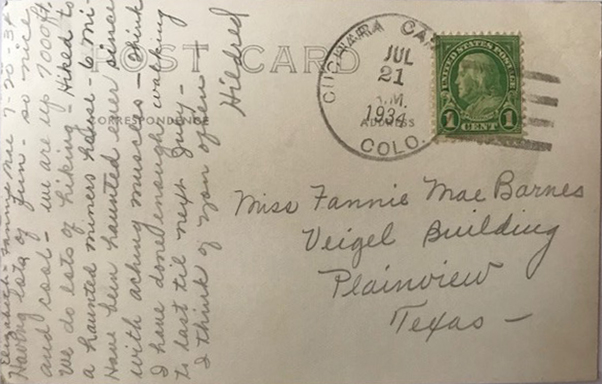 POST CARD
CORRESPONDENCE
ADDRESS
CUCHARA CA
JUL
21
M.
1934
COLO.
UNITED STATES POSTAGE
1 CENT 1
Elizabeth - Fannie Mae 7-20-34
Having lots of fun - so nice
and cool - we are up 9000 ft.
we do lots of hiking - Hiked to
a haunted miners house - 6 mi -
Have been haunted ever since
with aching muscles - think
I have done enough walking
to last til next July -
I think of you often -
Hildred
Miss Fannie Mae Barnes
Veigel Building
Plainview
Texas -